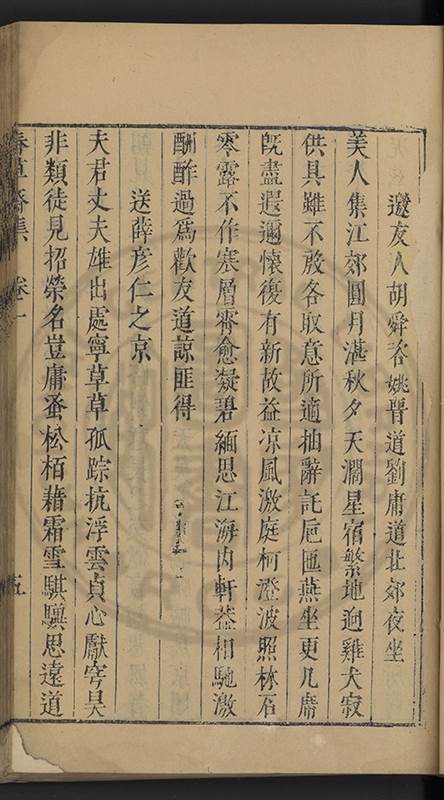 邀友人胡舜咨姚晋道劉庸道北郊夜坐
美人集江郊圓月湛秋夕天濶星宿繁地迥雞犬寂
供具雖不殷各取意所適抽辭託巵匜燕坐更几席
旣盡遐邇懷復有新故益凉風激庭柯澄波照林石
零露不作寒層霄愈凝碧緬思江海内軒葢相馳激
酬酢過爲歡友道諒匪得
送薛彦仁之京
夫君丈夫雄出處寧草草孤踪抗浮雲貞心獻穹昊
非類徒見招榮名豈庸蚤松栢藉霜雪騏驥思遠道
春草齋集 卷一 五